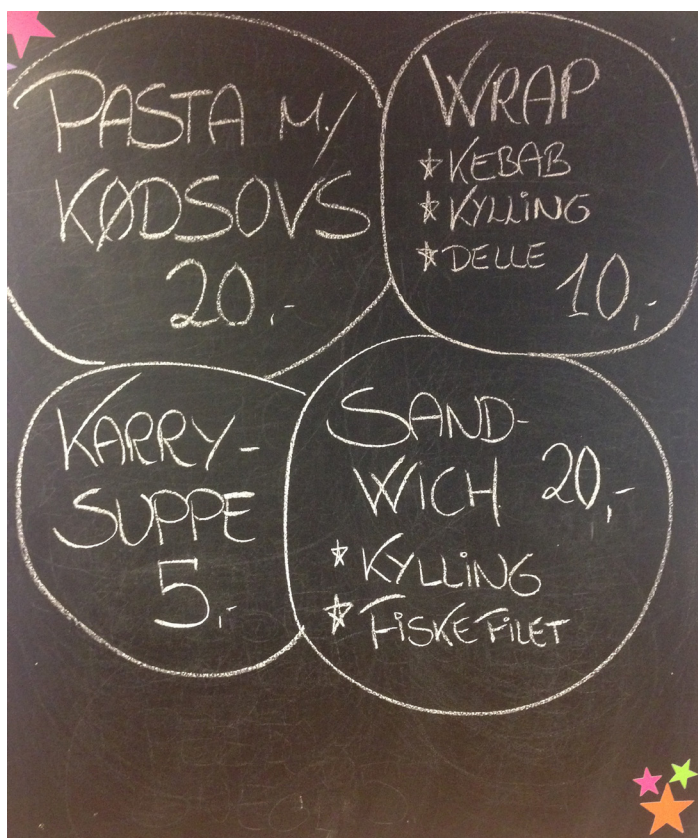 PASTA M./
KØDSOVS
20,-
WRAP
* KEBAB
* KYLLING
* DELLE
10,-
KARRY-
SUPPE
5,-
SAND-
WICH 20,-
* KYLLING
* FISKEFILET